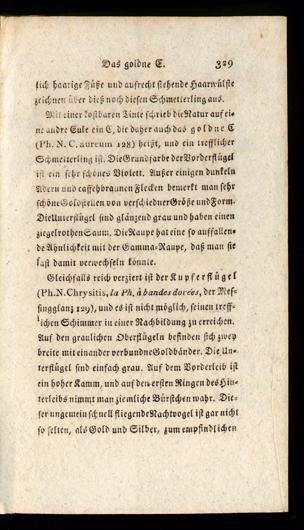 Das goldne C. 329
lich haarige Füße und aufrecht stehende Haarwülste
zeichnen über dieß noch diesen Schmetterling aus.
Mit einer kostbaren Tinte schrieb die Natur auf ei-
ne andre Eule ein C, die daher auch das goldne C
(Ph. N. C. aureum 128) heißt, und ein trefflicher
Schmetterling ist. Die Grundfarbe der Vorderflügel
ist ein sehr schönes Violett. Außer einigen dunkeln
Adern und caffehbraunen Flecken bemerkt man sehr
schöne Goldstellen von verschiedner Größe und Form.
Die Unterflügel sind glänzend grau und haben einen
ziegelrothen Saum. Die Raupe hat eine so auffallen-
de Ähnlichkeit mit der Gamma-Raupe, daß man sie
fast damit verwechseln könnte.
Gleichfalls reich verziert ist der Kupferflügel
(Ph. N. Chrysitis, la Ph. à bandes dorées, der Mes-
singglanz 129), und es ist nicht möglich, seinen treff-
lichen Schimmer in einer Nachbildung zu erreichen.
Auf den graulichen Oberflügeln befinden sich zwey
breite mit einander verbundne Goldbänder. Die Un-
terflügel sind einfach grau. Auf dem Vorderleib ist
ein hoher Kamm, und auf den ersten Ringen des Hin-
terleibs nimmt man ziemliche Bürstchen wahr. Die-
ser ungemein schnell fliegende Nachtvogel ist gar nicht
so selten, als Gold und Silber, zum empfindlichen